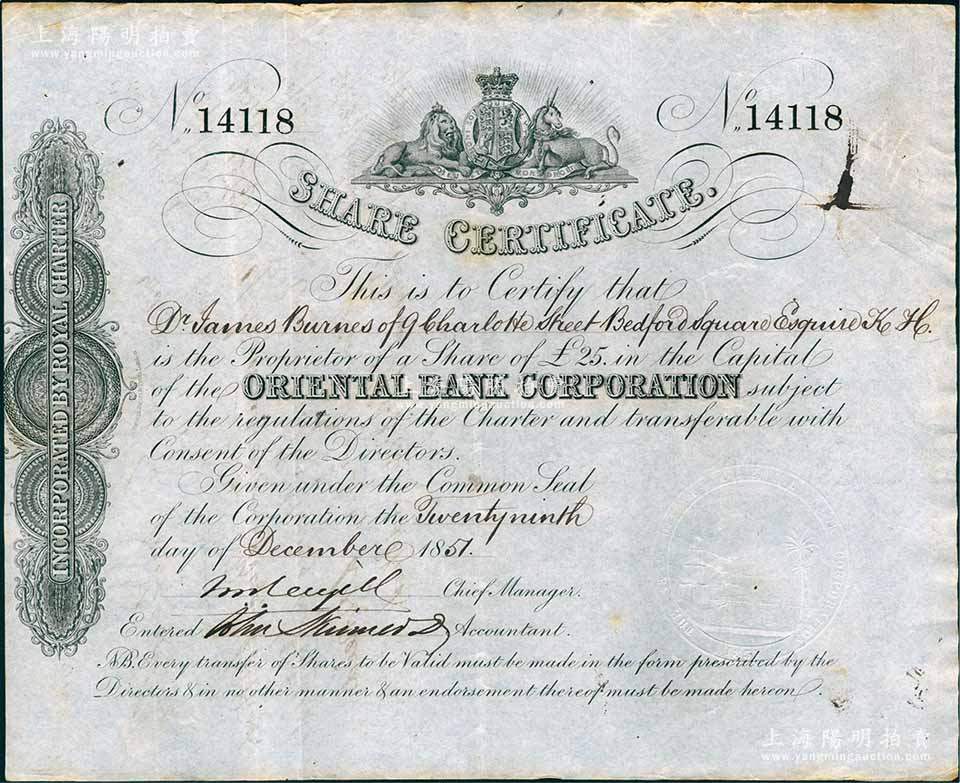 上海陽明拍賣
www.yangmingauction.com
No 14118
No 14118
SHARE CERTIFICATE.
INCORPORATED BY ROYAL CHARTER
This is to Certify that
Dr James Burnes of 9 Charlotte Street Bedford Square Esquire K H.
is the Proprietor of a Share of £25. in the Capital
of the ORIENTAL BANK CORPORATION subject
to the regulations of the Charter and transferable with
Consent of the Directors.
Given under the Common Seal
of the Corporation the Twentyninth
day of December 1851.
Chief Manager.
Entered John Skinner Accountant.
NB. Every transfer of Shares to be Valid must be made in the form prescribed by the
Directors & in no other manner & an endorsement thereof must be made hereon.
上海陽明拍賣
www.yangmingauction.com
上海陽明拍賣
www.yangmingauction.com